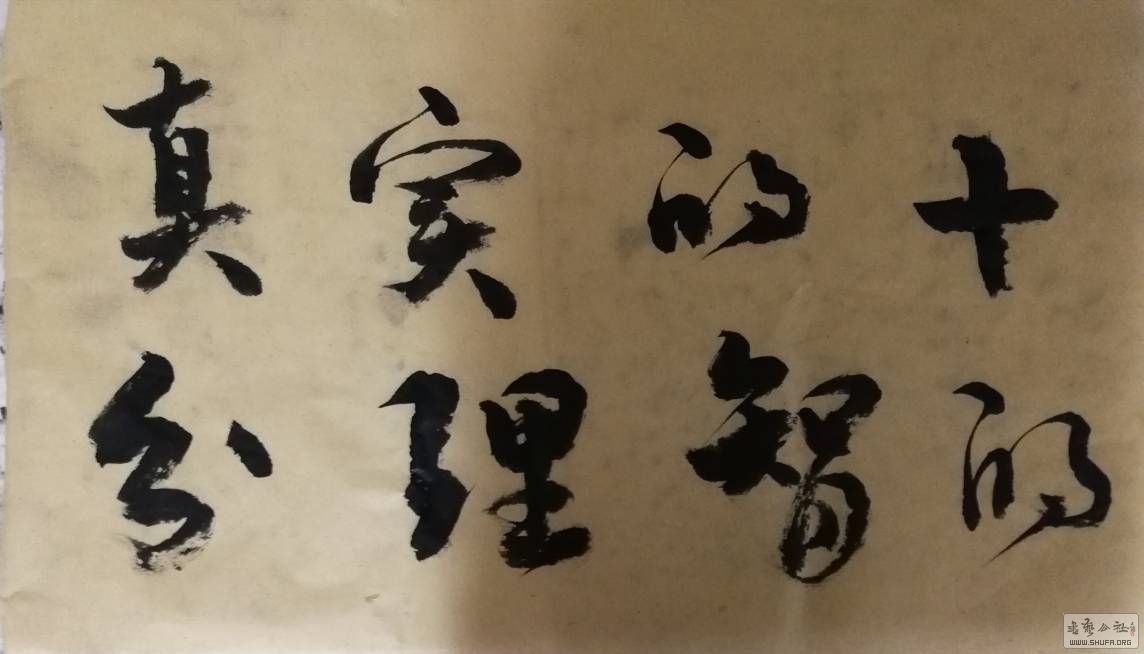 真实的十
分理智的
書藝公社
WWW.SHUFA.ORG